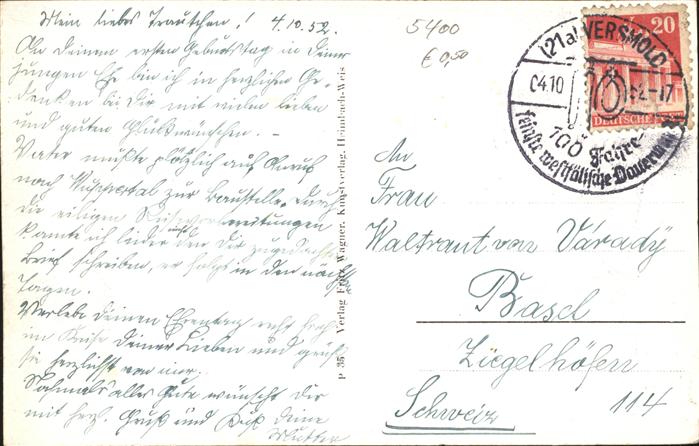 Mein liebes Trautchen! 4.10.52.
An Deinem ersten Geburtstag in Deiner
jungen Ehe bin ich in herzlichem Ge-
denken bei Dir mit vielen lieben
und guten Glückwünschen. –
Vater mußte plötzlich auf Anruf
nach Wuppertal zur Baustelle. Durch
die eiligen Reisevorbereitungen
konnte ich leider nicht den Dir zugedachten
Brief schreiben, er folgt in den nächsten
Tagen.
Verlebe Deinen Ehrentag recht froh
im Kreise Deiner Lieben und grüße
sie herzlichst von mir.
Nochmals alles Gute wünscht Dir
mit herzl. Gruß und Kuß Deine
Mutter
P 35 Verlag Fritz Wagner, Kunstverlag, Heimbach-Weis
5400
€ 0,50
20
DEUTSCHE
(21a) VERSMOLD
04.10 52-17
100 Jahre
feinste westfälische Dauerwurst
An
Frau
Waltraut von Várady
Basel
Ziegelhöfen
114
Schweiz